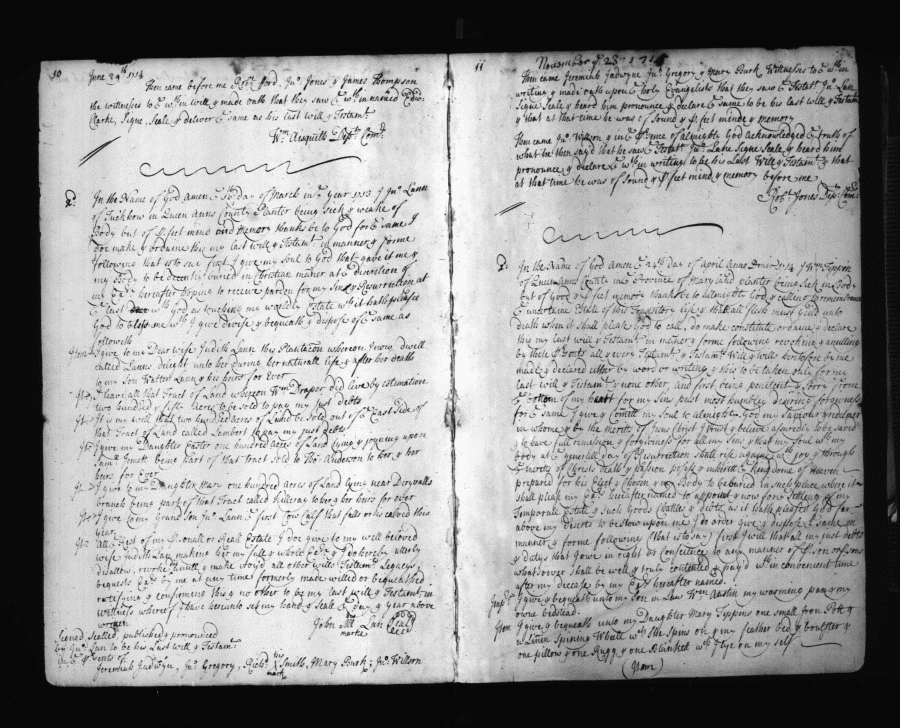 10
June 29th 1714
Then came before me Robt. Ford, Jno. Jones & James Thompson
the witnesses to ye wth.in will & made oath that they saw ye wth.in named Edwd.
Clarke, Signe, Seale & deliver ye same as his last will & Testamt.
Wm. Dept. Comry.
In the Name of God amen ye day of March in ye Year 1713 I Jno. Lann
of Tuckhow in Queen Anns County Planter being sick & weake of
Body but of pfect mind and Memory thanks be to God for ye same I
doe make & ordaine this my last will & Testamt. in manner & forme
following that is to say first I give my Soul to God that gave it me &
my Body to be decently buried in Christian maner at ye discretion of
my Exrs. hereafter hoping to receive pardon for my Sins & Resurrection at
ye last wth. God as touching my worldly Estate wch. it hath pleased
God to bless me wth. I give devise & bequeath & dispose of ye same as
followeth
Item I give to my Dear wife Judith Lann this Plantacon whereon I now dwell
called Lanns delight unto her during her naturall life & after her death
to my Son Lann & his heirs for Ever
It. I leave that Tract of Land whereon Wm. Draper did live by estimation
two hundred & fifty Acres to be sold to pay my just debts
It. It is my will that two hundred acres of Land be Sold out of ye East Side of
that Tract of Land called Lambert to pay my just debts
It. I give my Daughter Easter one hundred acres of Land lying & joyning upon
Saml. being part of that tract sold to Tho. Anderson to her & her
heirs for Ever
It. I give to my Daughter Mary one hundred acres of Land lying near
branch being part of that Tract called Killeray to her & her heirs for ever
It. I give to my Grand Son Jno. Lann ye first Cow Calf that falls or his calved this
year
It. All ye Rest of my psonall or Reall Estate I doe give to my well beloved
wife Judith Lan making her my full & whole Exrx. & I do hereby utterly
disallow, revoke disanull & make voyd all other wills Testamts. Legacys
bequests Exrs. by me at any time formerly made willed or bequeathed
ratefying & confirming this & no other to be my last will & Testamt. in
wittness whereof I have hereunto set my hand & Seale ye day & year above
written
John Lan Seale
marke
Signed Sealled, published & pronounced
by Jno. Lan to be his Last will & Testamt.
in ye psents of
Jeremiah Jadwyn, Jno. Gregory, Richd. his Smith, Mary Burk, Jno. Willson
mark
11
November ye 23 1714
Then came Jeremiah Jadwyne Jno. Gregory & Mary Burk Wittnesses to ye wth.in
writing & made oath upon ye holy Evangelists that they saw ye Testatr. Jno. Lane
Signe Seale & heard him pronounce & declare ye same to be his last will & Testamt.
& that at that time he was of Sound & pfect minde & memory
Then came Jno. Willson & in ye psence of almighty God acknowledged ye truth of
what he then say'd that he saw ye Testatr. Jno. Lane Signe Seale & heard him
pronounce & declare ye wth.in writeing to be his Last Will & Testamt. & that
at that time he was of Sound & pfect mind & memory before me
Robt. Jones Dept. Comry.
In the Name of God Amen ye 24th day of April Anno Domi 1714 I Wm. Tippin
of Queen Anns County in ye Province of Maryland planter being Sick in Body
but of good & pfect memory thanks be to Allmighty God & calling to remembrance
ye uncertaine State of this Transitory life & that all flesh must yield unto
death when it shall please God to call, do make constitute ordaine & declare
this my last will & Testamt. in maner & forme following revoking & anulling
by these psents all & every Testamt. & Testamts. Will & wills heretofore by me
made & declared either by word or writing & this to be taken only for my
last will & Testamt. & none other, and first being penitent & Sorry from
ye bottom of my heart for my Sins past most humbly desiring forgiveness
for ye Same I give & comitt my Soul to almighty God my Saviour & redeemer
in whome & by the merits of Jesus Christ I trust & believe assuredly to be saved
& to have full remission & forgiveness for all my Sins & that my Soul wth. my
body at ye generall day of Resurrection shall rise againe wth. joy & through
ye merits of Christs death & passion possess & inherit ye Kingdome of Heaven
prepared for his Elect & Chosen & my Body to be buried in such place where it
shall please my Exr. hereafter named to appoint & now for ye Settling of my
Temporale Estate & such Goods Chatles & debts as it hath pleased God far
above my Deserts to bestow upon me I do order give & dispose ye same in
manner & forme following (that is to say) first I will that all my just debts
& dutys that I owe in right or Conscience to any manner of pson or psons
whatsoever shall be well & truly contented & pay'd wth.in convenient time
after my decease by my Exr. hereafter named.
Imps. I give & bequeath unto my Son in Law Wm. Austin my warming pan & my
owne bedstead.
Item I give & bequeath unto my Daughter Mary Tippins one small Iron Pot &
a Linen Spining Wheele wth. she spins on & my feather bed & boulster &
one pillow & one Rugg & one Blankett wch. I lye on my Self
(Item)